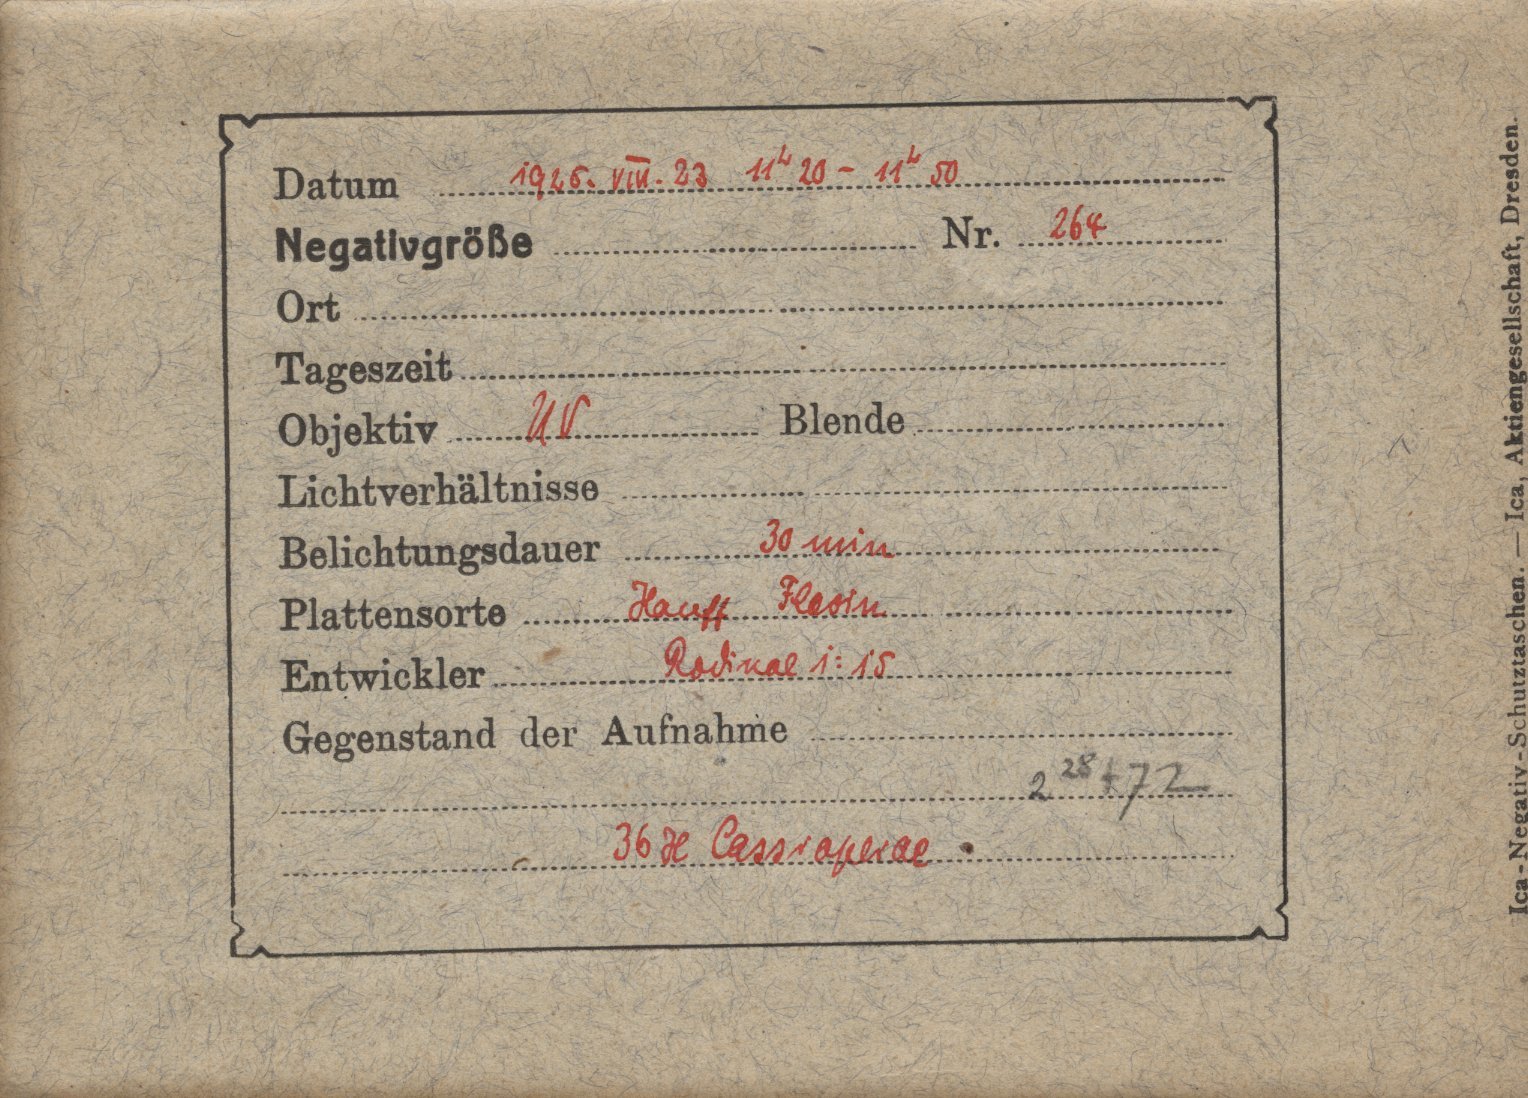 Datum 1925. VIII. 23 11h 20 – 11h 50
Negativgröße Nr. 264
Ort
Tageszeit
Objektiv UV Blende
Lichtverhältnisse
Belichtungsdauer 30 min
Plattensorte Hauff Flavin
Entwickler Rodinal 1:15
Gegenstand der Aufnahme
2 28 +72
36 H Cassiopeiae
Ica-Negativ-Schutztaschen. — Ica, Aktiengesellschaft, Dresden.